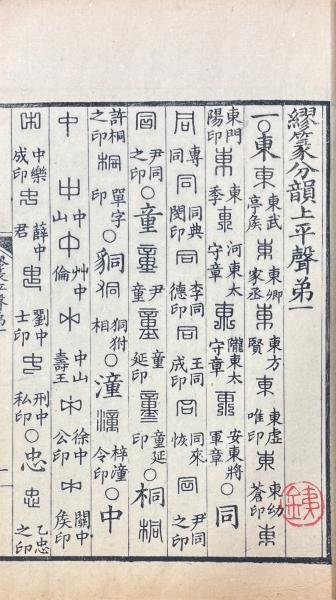 繆篆分韻上平聲弟一
一〇東東東武亭矦東東卿家丞東東方賢東東虛唯印東東幼蒼印東
東門陽印東東季東河東太守章東隴東太守章東安東將軍章〇同
同專同同同典閔印同李同德印同王同成印同同來恢同尹同之印
同尹同之印〇童童尹童延印童童延印〇桐桐
許桐之印桐單字印〇狪狪狪附相〇潼潼梓潼令印〇中
中中中山中艸中倫中中山壽王中徐中公印中關中矦印
中中樂成印中薛中君中劉中士印中刑中私印〇忠忠乙忠之印